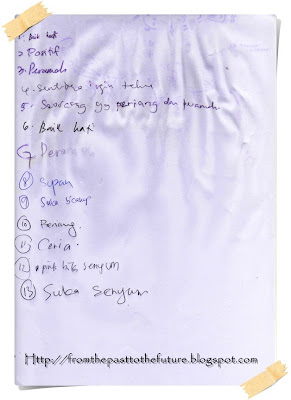 1. Baik hati
2. Positif
3. Peramah
4. Sentiasa ingin tahu
5. Seorang yg periang dan peramah
6. Baik hati
8 Sopan
9 Suka
10 Tenang.
11 Ceria.
12 senyum
13 Suka Senyum
Http://fromthepasttothefuture.blogspot.com